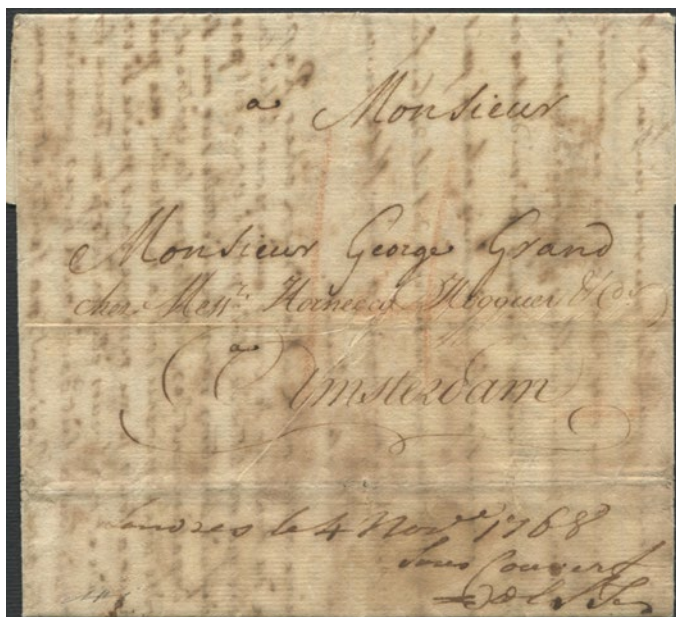 a Monsieur
Monsieur George Grand
chez Mess.rs Horneca Hogguer & Co
a
Amsterdam
Londres le 4 Nov.re 1768
Sous Couvert